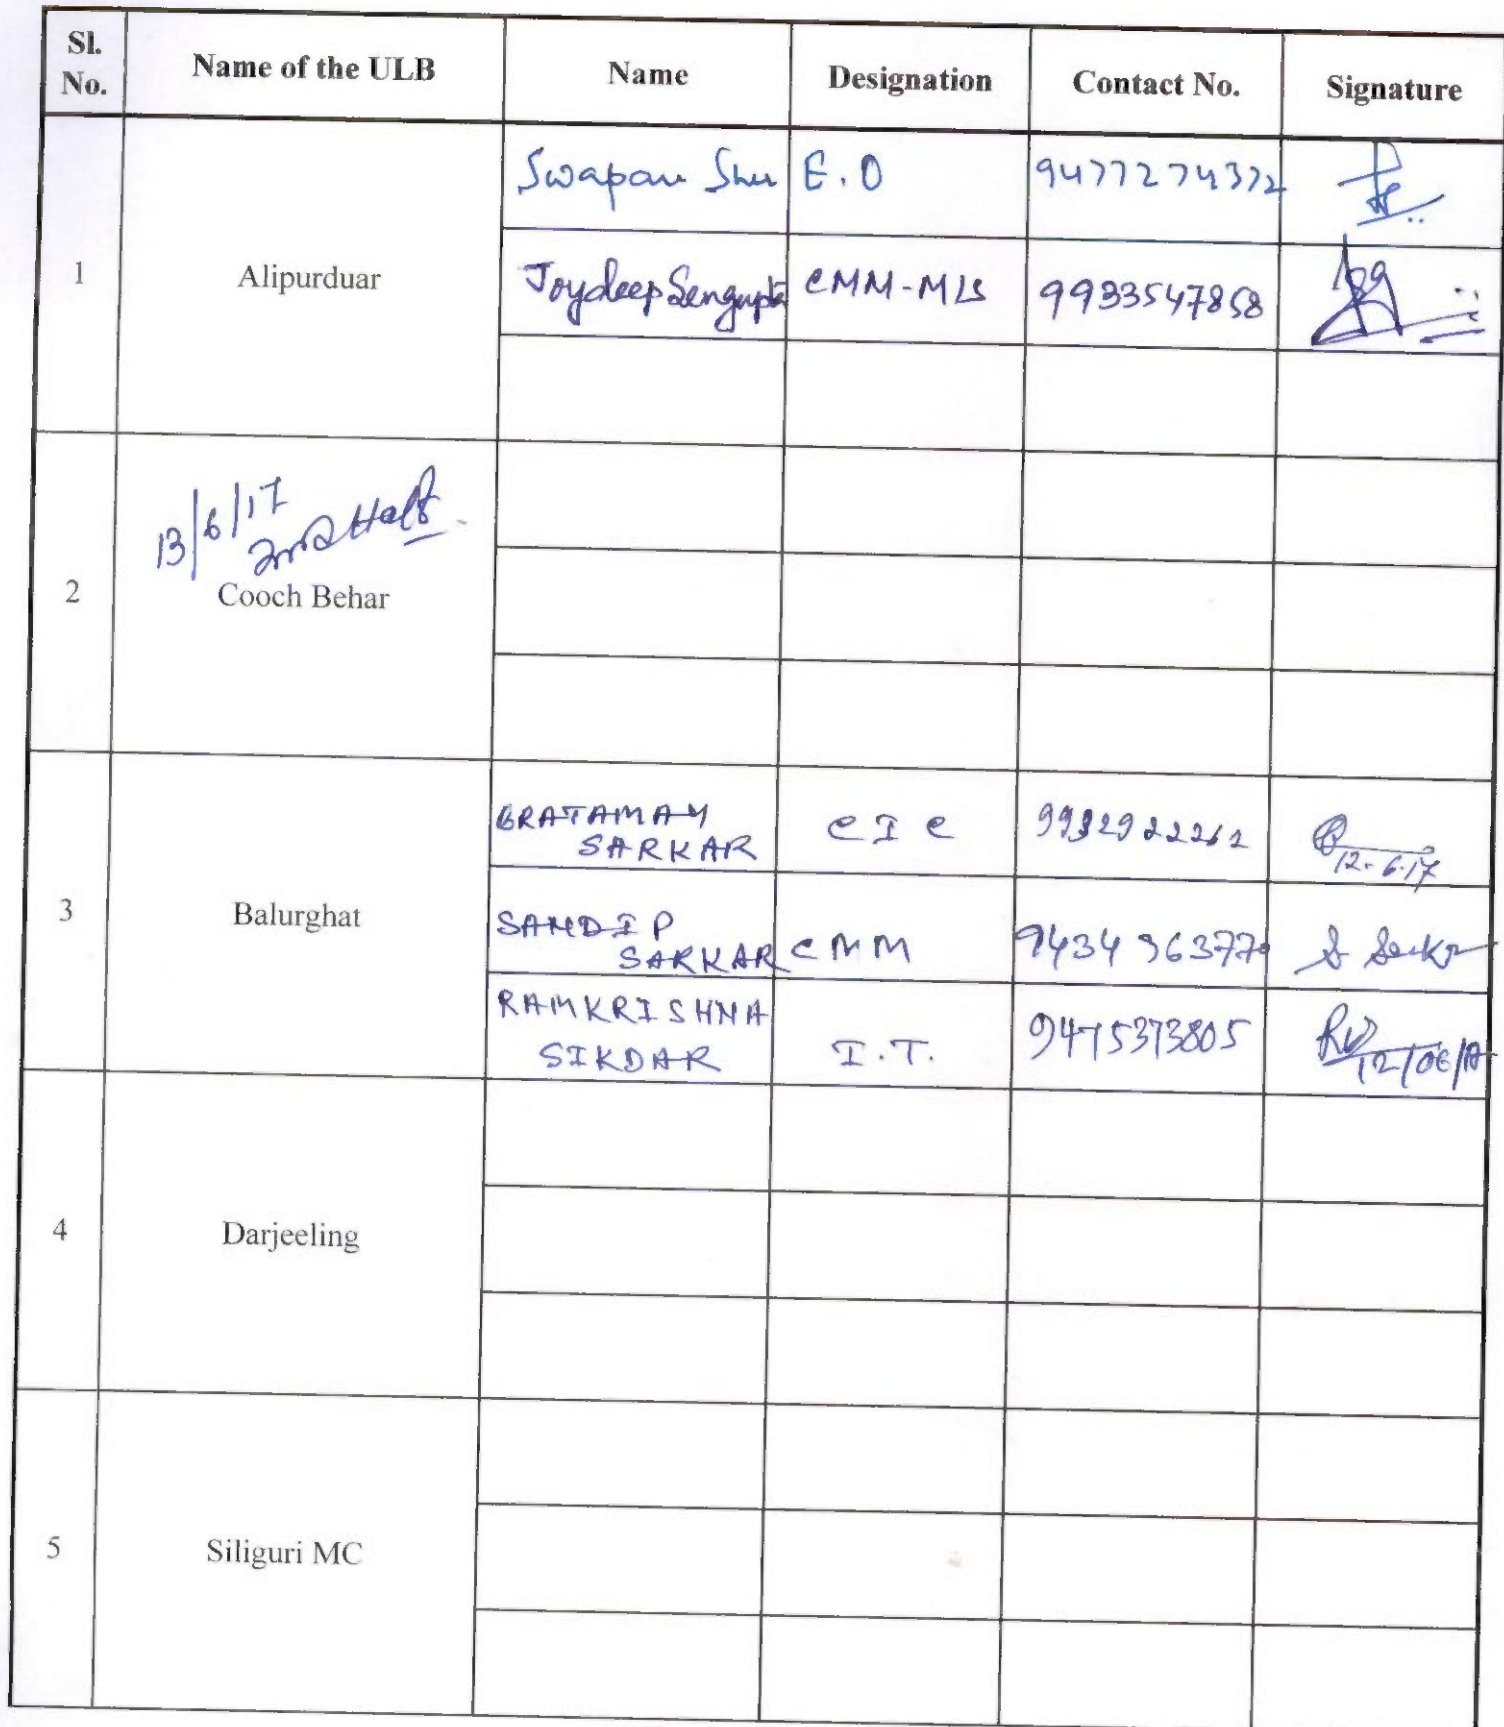 Sl. No. Name of the ULB Name Designation Contact No. Signature
1 Alipurduar
Swapan E.O 9477274372
Joydeep Sengupta CMM-MIS 9933547858
13/6/17
2nd Half
2 Cooch Behar
3 Balurghat
BRATAMAY SARKAR CIC 9932922262
12-6-17
SANDIP SARKAR CMM 9434963770 S Sarkar
RAMKRISHNA SIKDAR I.T. 9475373805
12/06/17
4 Darjeeling
5 Siliguri MC